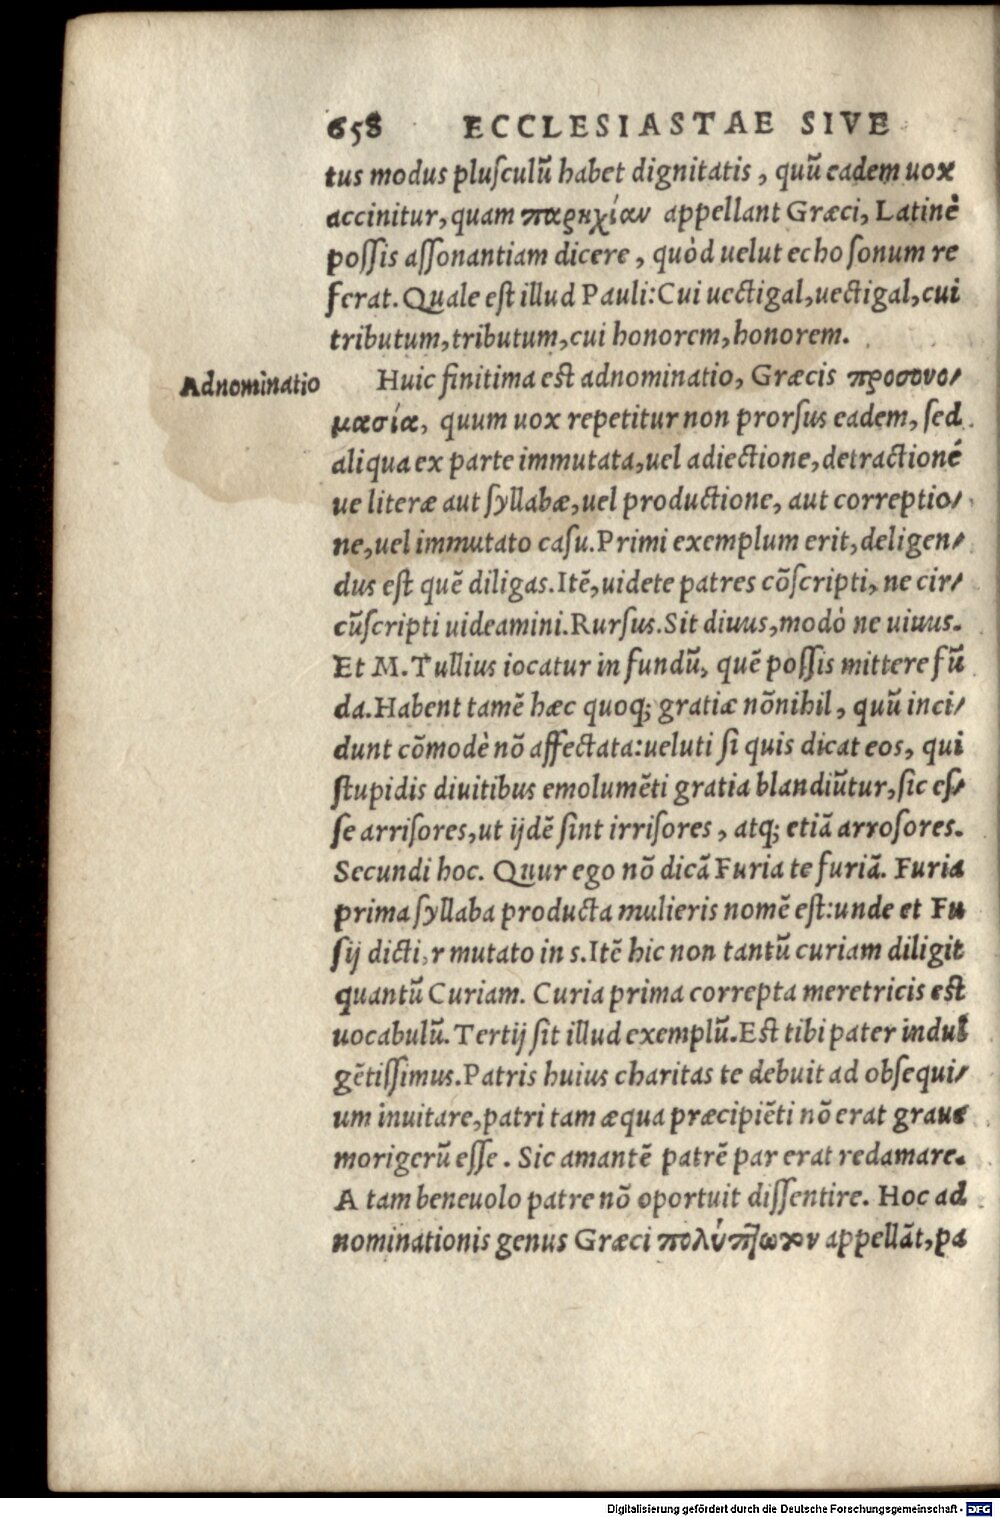 658 ECCLESIASTAE SIVE
tus modus pluſculū habet dignitatis, quū eadem uox
accinitur, quam παρηχίαν appellant Græci, Latinè
poſſis aſſonantiam dicere, quòd uelut echo ſonum re
ferat. Quale eſt illud Pauli: Cui uectigal, uectigal, cui
tributum, tributum, cui honorem, honorem.
Adnominatio
Huic finitima eſt adnominatio, Græcis προσονο⸗
μασία, quum uox repetitur non prorſus eadem, ſed
aliqua ex parte immutata, uel adiectione, detractioné
ue literæ aut ſyllabæ, uel productione, aut correptio⸗
ne, uel immutato caſu. Primi exemplum erit, deligen⸗
dus eſt quē diligas. Itē, uidete patres cōſcripti, ne cir⸗
cūſcripti uideamini. Rurſus. Sit diuus, modò ne uiuus.
Et M. Tullius iocatur in fundū, quē poſſis mittere fū
da. Habent tamē hæc quoq; gratiæ nōnihil, quū inci⸗
dunt cōmodè nō affectata: ueluti ſi quis dicat eos, qui
ſtupidis diuitibus emolumēti gratia blandiūtur, ſic eſ⸗
ſe arriſores, ut ijdē ſint irriſores, atq; etiā arroſores.
Secundi hoc. Quur ego nō dicā Furia te furiā. Furia
prima ſyllaba producta mulieris nomē eſt: unde et Fu
ſij dicti, r mutato in s. Itē hic non tantū curiam diligit
quantū Curiam. Curia prima correpta meretricis eſt
uocabulū. Tertij ſit illud exemplū. Eſt tibi pater indul
gētiſſimus. Patris huius charitas te debuit ad obſequi⸗
um inuitare, patri tam æqua præcipiēti nō erat graue
morigerū eſſe. Sic amantē patrē par erat redamare.
A tam beneuolo patre nō oportuit diſſentire. Hoc ad
nominationis genus Græci πολύπτωτον appellāt, pa
Digitalisierung gefördert durch die Deutsche Forschungsgemeinschaft - DFG